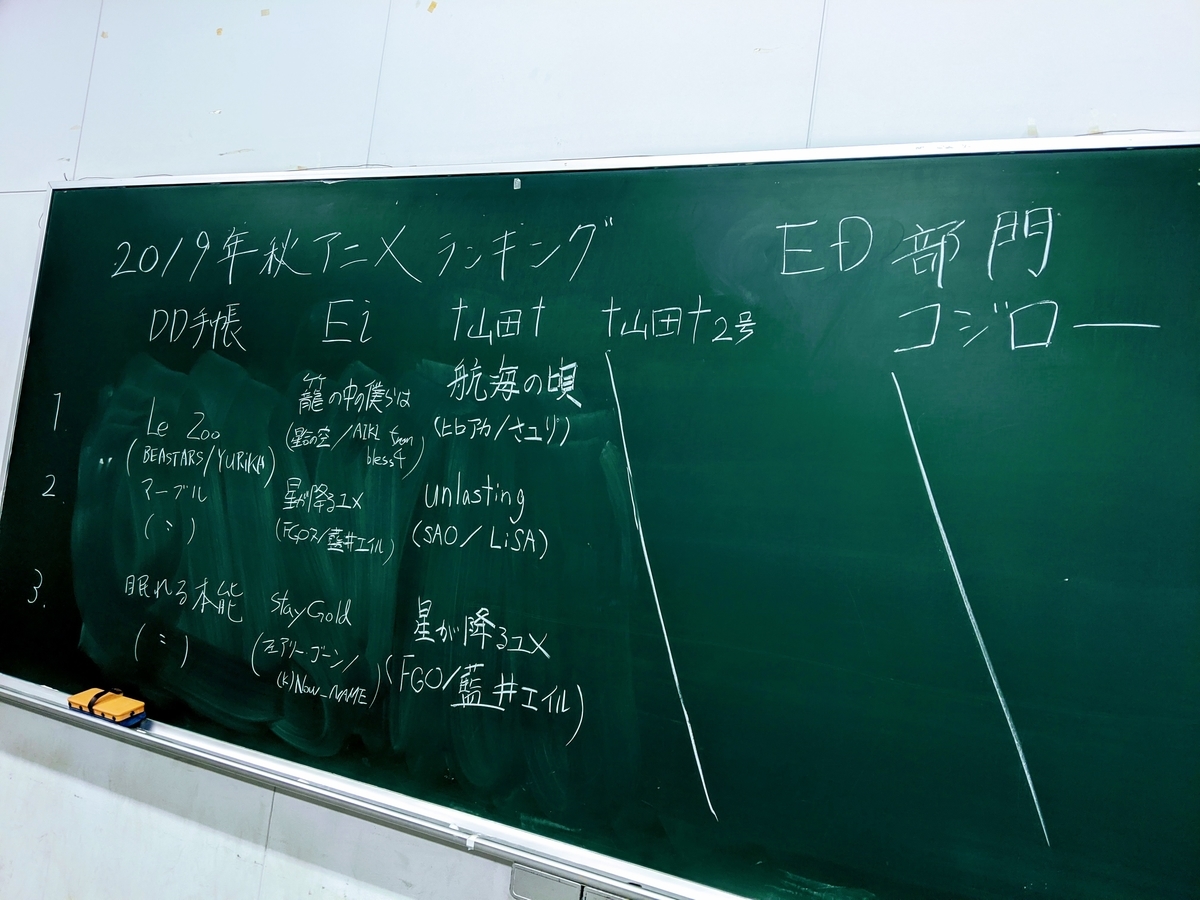 2019年秋アニメランキング
ED部門
DD手帳
Ei
†山田†
†山田†2号
コジロー
1.
Le Zoo
(BEASTARS/YURiKA)
籠の中の僕らは
(星合の空/AIKI from
bless4)
航海の頃
(ヒトアカ/さユリ)
2.
マーブル
(〃)
星が降るユメ
(FGOス/藍井エイル)
unlasting
(SAO/LiSA)
3.
眠れる本能
(〃)
Stay Gold
(フェアリーゴーン/
(K)NoW_NAME)
星が降るユメ
(FGO/藍井エイル)